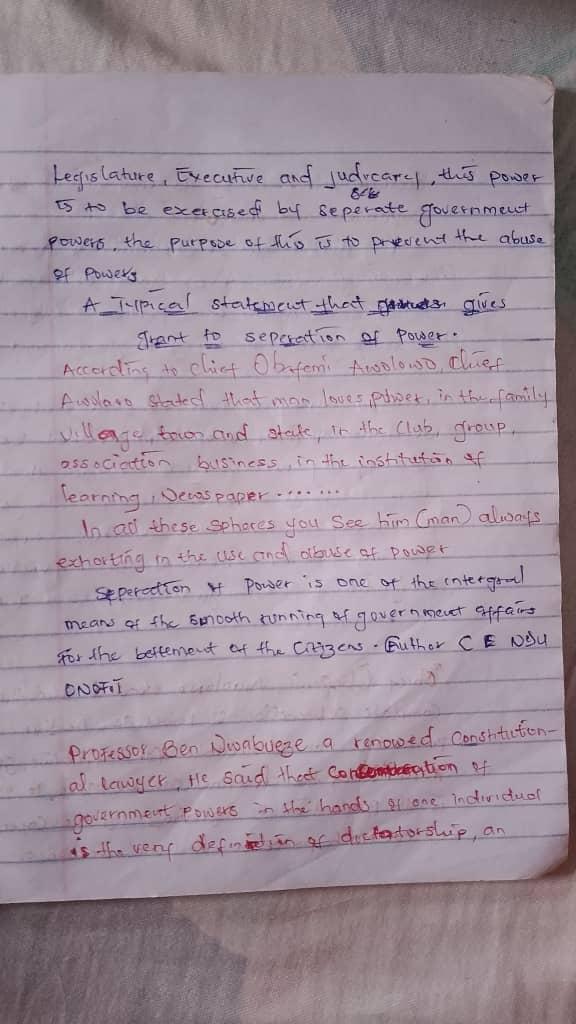 Legislature, Executive and Judicarcy, this power
is to be exercised by seperate government
powers, the purpose of this is to prevent the abuse
of Powers
A Typical statement that gives
grant to seperation of Power.
According to Chief Obafemi Awolowo, Chief
Awolowo stated that man loves power, in the family
village, town and state, in the Club, group,
association, business, in the institution of
learning, Newspaper .......
In all these spheres you See him (man) always
exhorting in the use and abuse of power
Seperation of Power is one of the intergral
means of the smooth running of government affairs
for the bettement of the Citizens. Author C E NDU
ONOFII
Professor Ben Nwabueze a renowed Constitution-
al lawyer, He said that Concentration of
government Powers in the hands of one individual
is the very definition of dictatorship, an